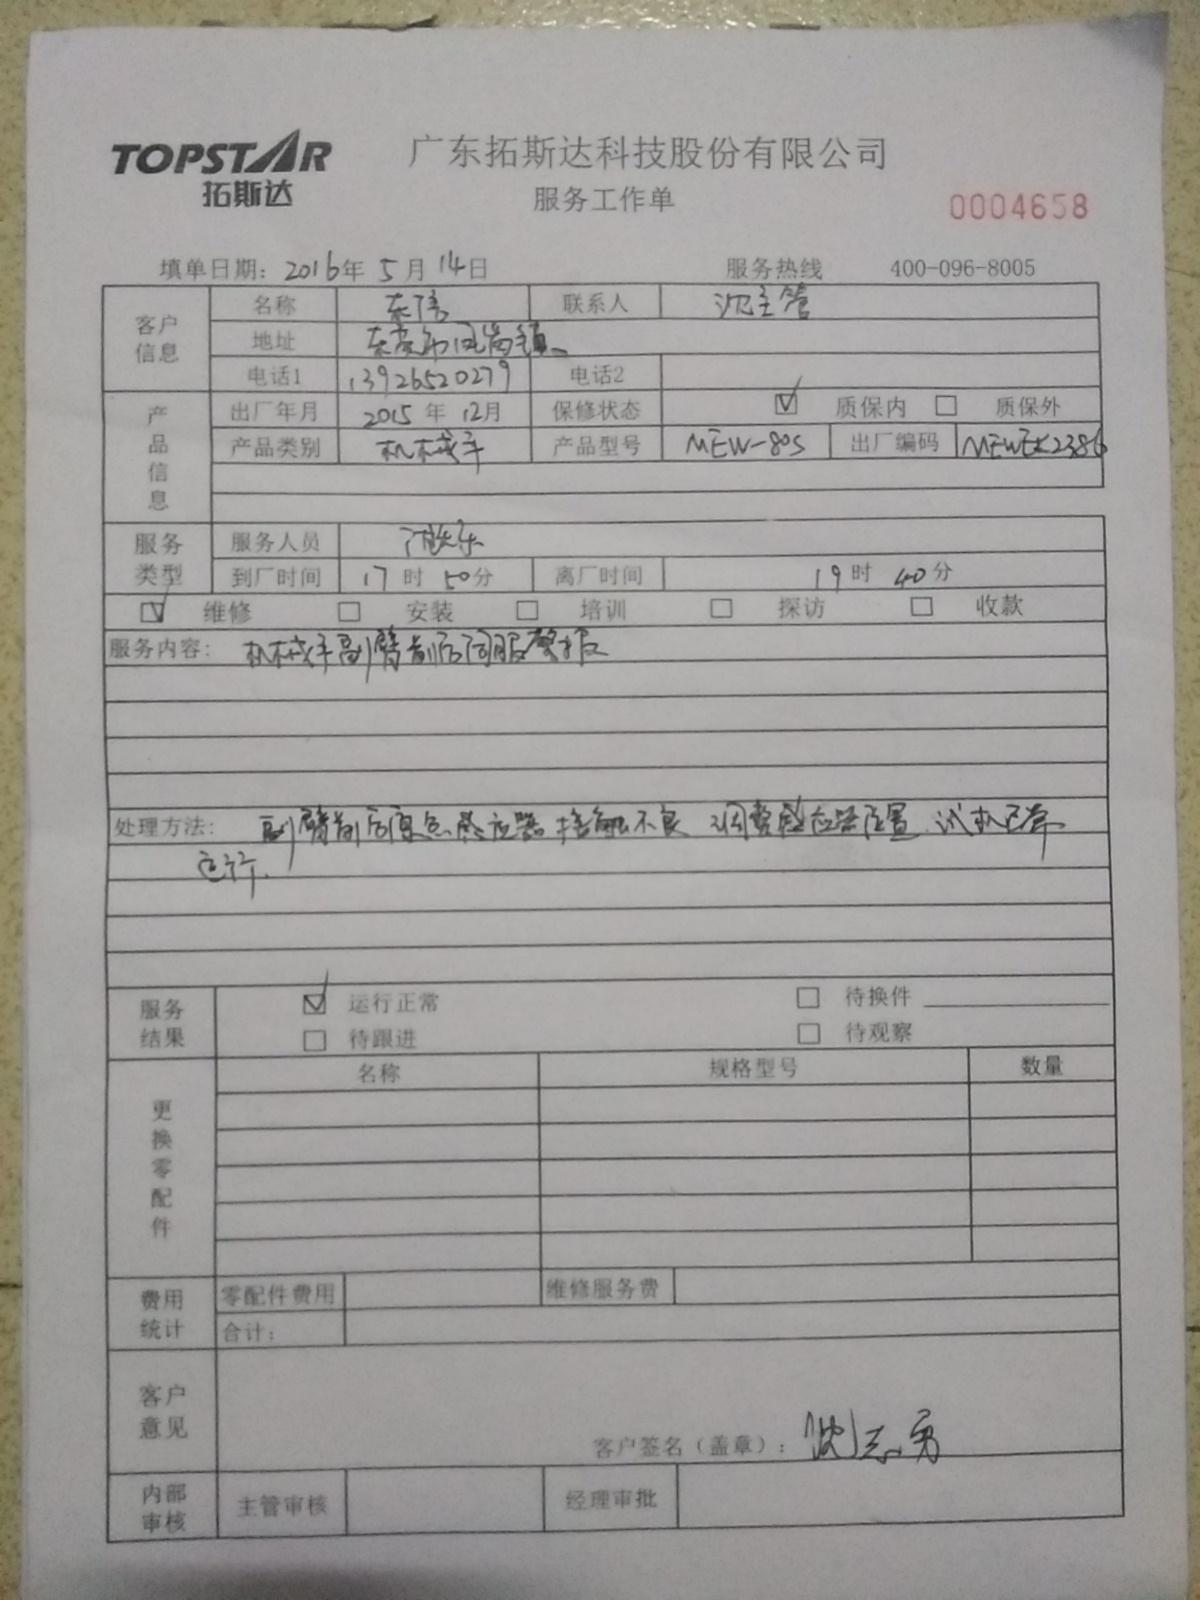 TOPSTAR
拓斯达
广东拓斯达科技股份有限公司
服务工作单
0004658
填单日期: 2016年 5月 14日 服务热线 400-096-8005
客户信息
名称 联系人 沈主管
地址 东莞市凤岗镇
电话1 13926520279 电话2
产品信息
出厂年月 2015年 12月 保修状态 质保内 质保外
产品类别 机械手 产品型号 MEW-80S 出厂编码 MEWEK2386
服务类型
服务人员
到厂时间 17时 50分 离厂时间 19时 40分
维修 安装 培训 探访 收款
服务内容: 机械手副臂前后伺服警报
处理方法: 副臂前后原点感应器接触不良 调整感应器位置,试机已常
运行.
服务结果
运行正常 待换件
待跟进 待观察
更换零配件
名称 规格型号 数量
费用统计
零配件费用 维修服务费
合计:
客户意见
客户签名(盖章): 沈志勇
内部审核
主管审核 经理审批